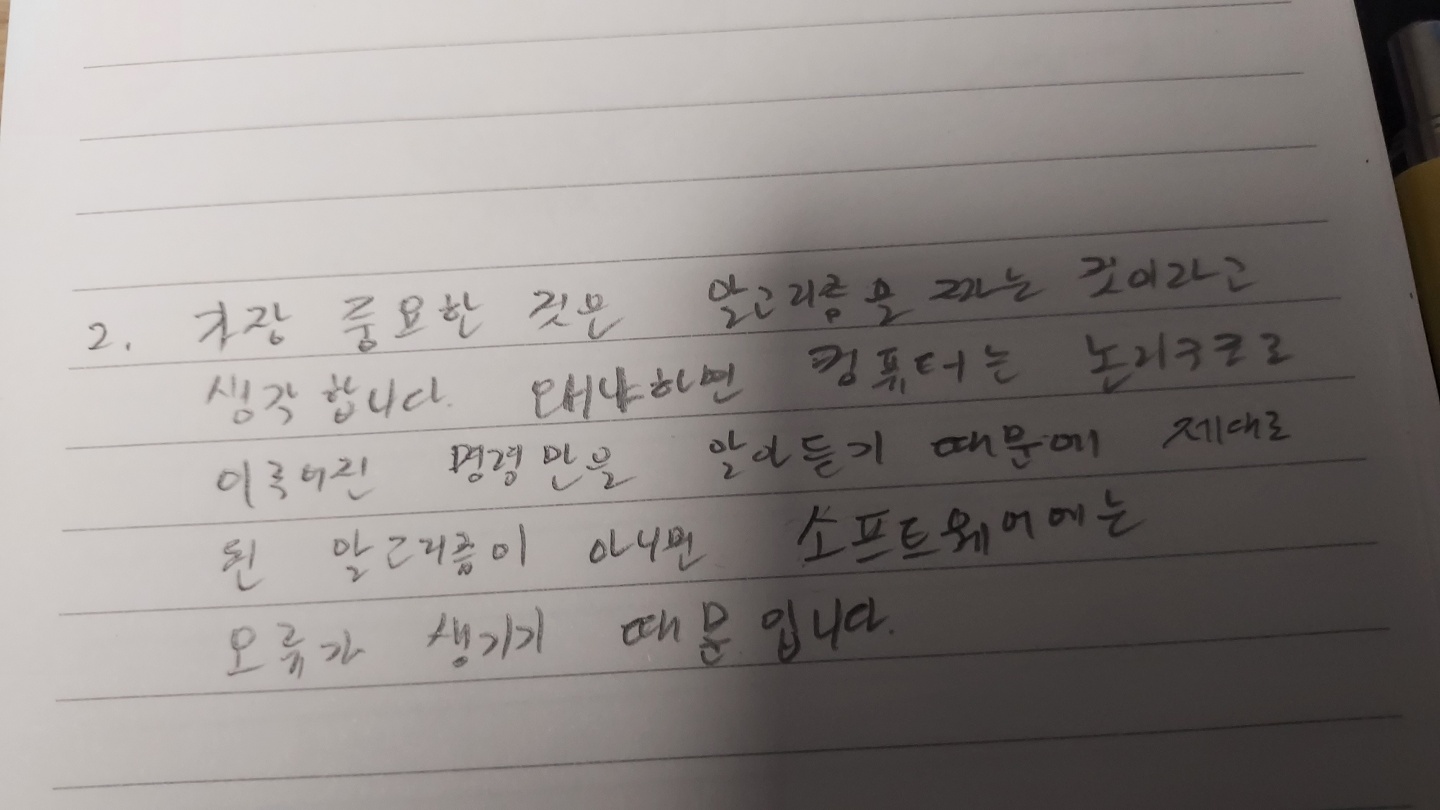 2. 가장 중요한 것은 알고리즘을 짜는 것이라고
생각합니다. 왜냐하면 컴퓨터는 논리구조로
이루어진 명령만을 알아듣기 때문에 제대로
된 알고리즘이 아니면 소프트웨어에는
오류가 생기기 때문입니다.